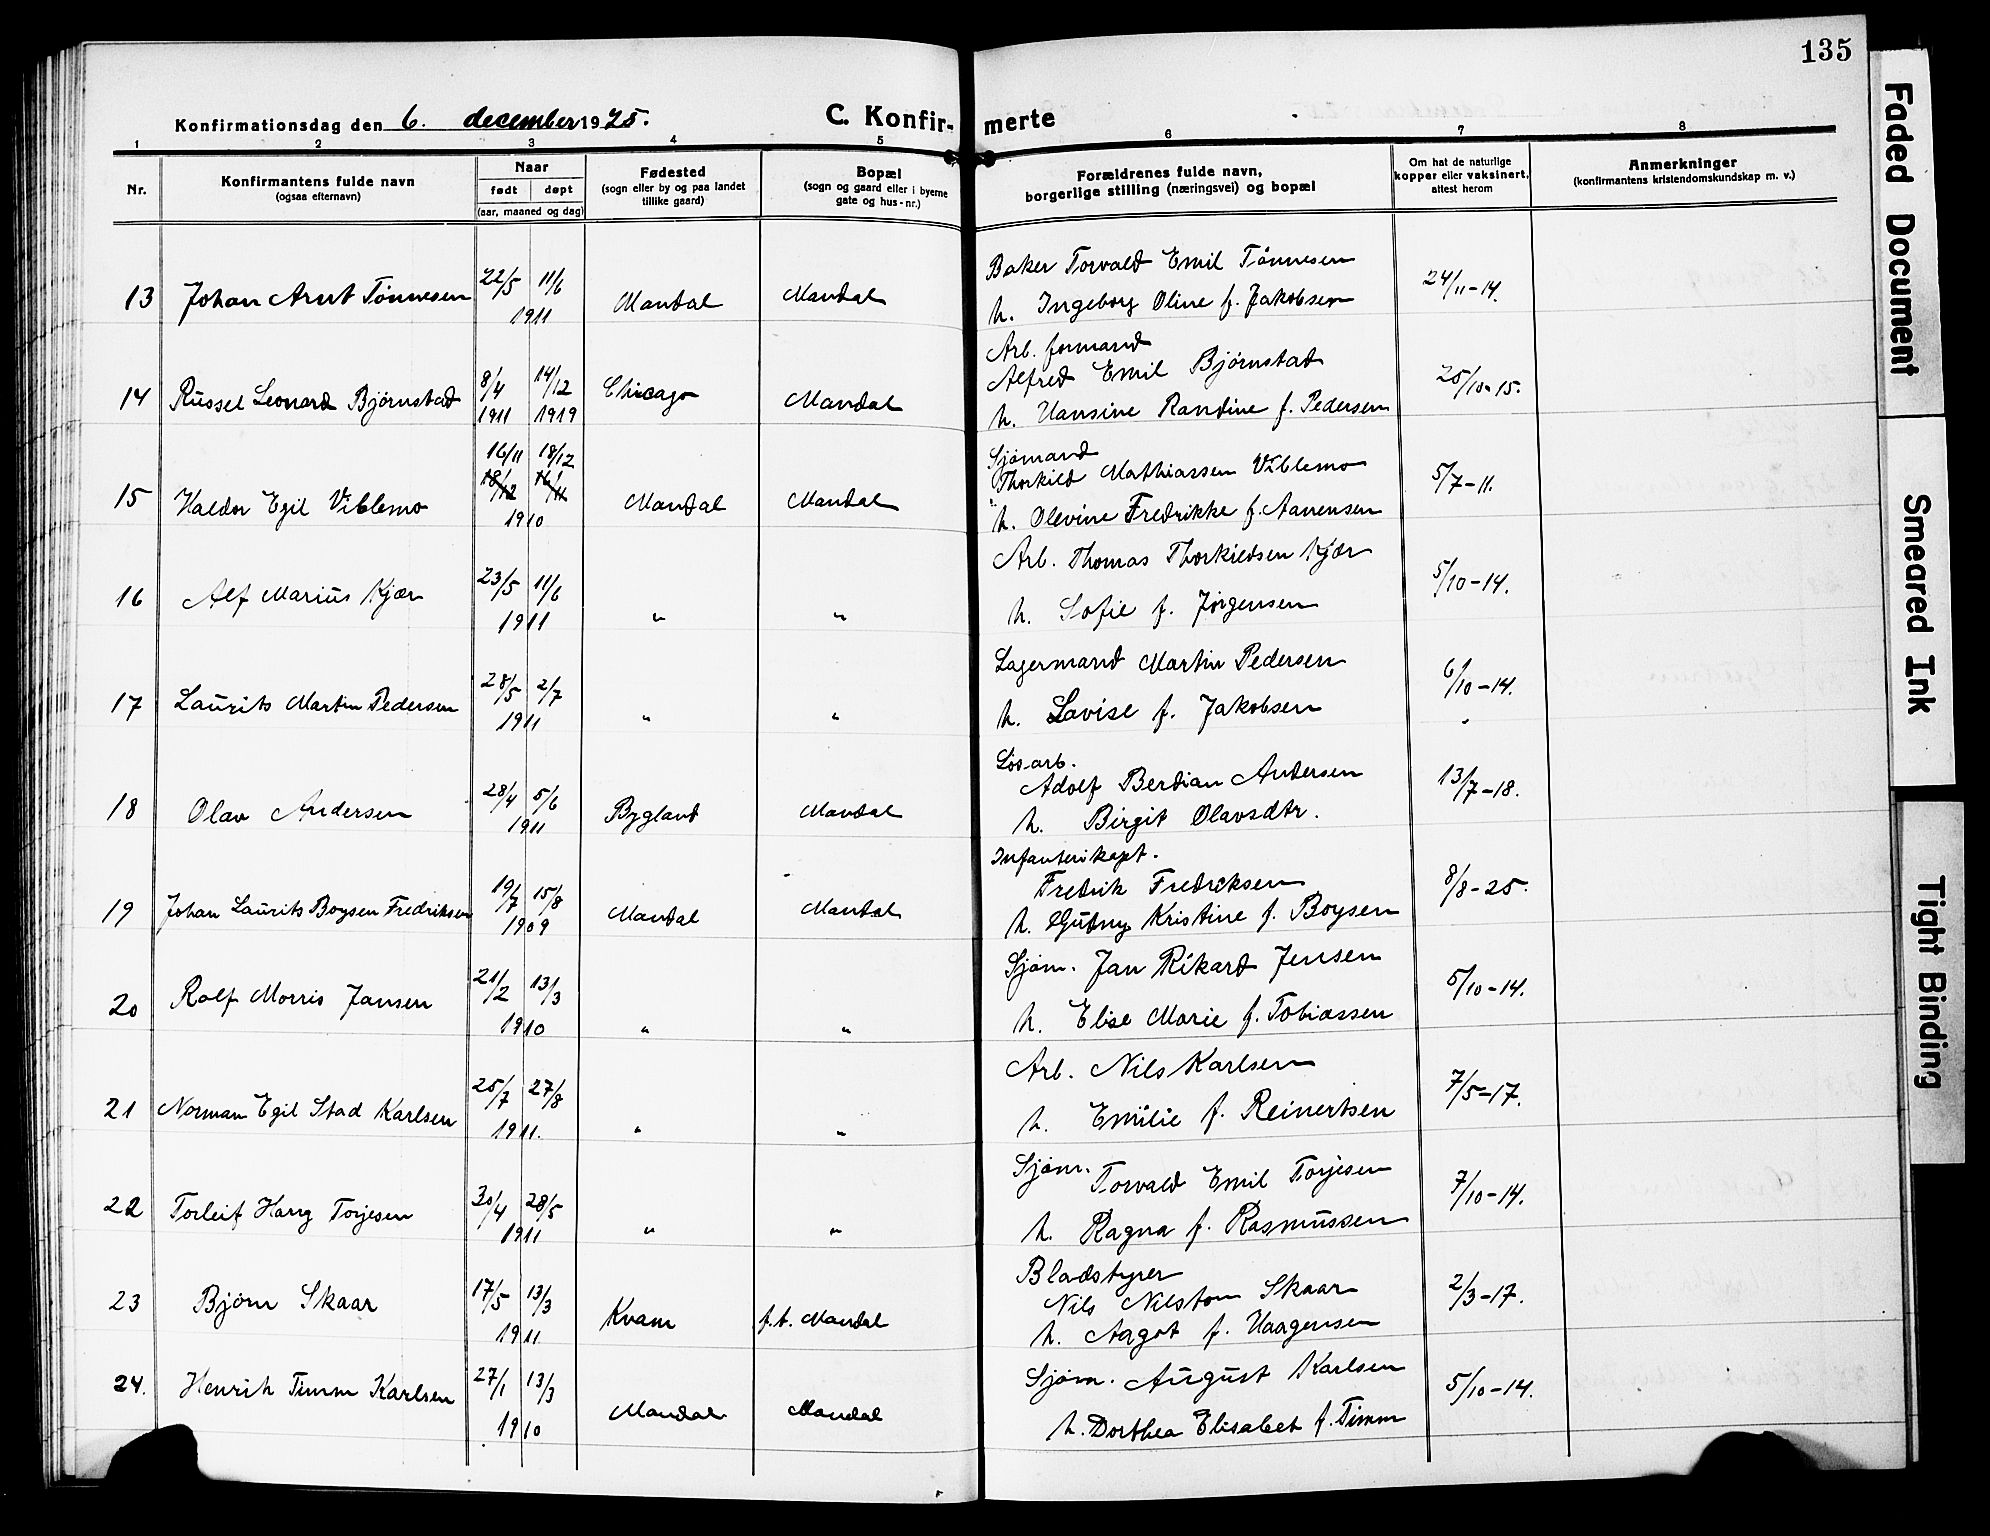 135
Konfirmationsdag den 6. december 1925.
C. Konfirmerte
1 2 3 4 5 6 7 8
Nr.
Konfirmantens fulde navn
(ogsaa efternavn)
Naar
født døpt
(aar, maaned og dag)
Fødested
(sogn eller by og paa landet
tillike gaard)
Bopæl
(sogn og gaard eller i byerne
gate og hus-nr.)
Forældrenes fulde navn,
borgerlige stilling (næringsvei) og bopæl
Om hat de naturlige
kopper eller vaksinert,
attest herom
Anmerkninger
(konfirmantens kristendomskundskap m. v.)
Baker Torvald Emil Tønnesen
13 Johan Arnt Tønnesen 22/5 11/6 1911 Mandal Mandal 24/11-14.
h. Ingeborg Oline f. Jakobsen
Arb. formand
Alfred Emil Bjørnstad
14 Russel Leonard Bjørnstad 8/4 1911 14/12 1919 Chicago Mandal 25/10-15.
h. Hansine Randine f. Pedersen
Sjømand
Thorkild Mathiassen Viblemo
15 Haldor Egil Viblemo 16/11 18/12 18/12 16/11 1910 Mandal Mandal 5/7-11.
h. Olevine Fredrikke f. Aanensen
Arb. Thomas Thorkildsen Kjær
16 Alf Marius Kjær 23/5 11/6 1911 " " 5/10-14.
h. Sofie f. Jørgensen
Lagermand Martin Pedersen
17 Laurits Martin Pedersen 28/5 2/7 1911 " " 6/10-14.
h. Lovise f. Jakobsen
Løs-arb.
Adolf Berdian Andersen
18 Olav Andersen 28/4 5/6 1911 Bygland Mandal 13/7-18.
h. Birgit Olavsdtr.
Infanterikapt.
Fredrik Fredriksen
19 Johan Laurits Boysen Fredriksen 19/7 15/8 1909 Mandal Mandal 8/8-25.
h. Gudny Kristine f. Boysen
Sjøm. Jan Rikard Jensen
20 Rolf Morris Jansen 21/2 13/3 1910 " " 5/10-14.
h. Elise Marie f. Tobiassen
Arb. Nils Karlsen
21 Norman Egil Stad Karlsen 25/7 27/8 1911. " " 7/5-17.
h. Emilie f. Reinertsen
Sjøm. Torvald Emil Torjesen
22 Torleif Harry Torjesen 30/4 28/5 1911 " " 7/10-14.
h. Ragna f. Rasmussen
Bladstyrer
Nils Nilston Skaar
23 Bjørn Skaar 17/5 13/3 1911 Kvam f.t. Mandal 2/3-17.
h. Aagot f. Haagensen
Sjøm. August Karlsen
24. Henrik Timm Karlsen 27/1 13/3 1910 Mandal Mandal 5/10-14.
h. Dorthea Elisabet f. Timm
Faded Document
Smeared Ink
Tight Binding